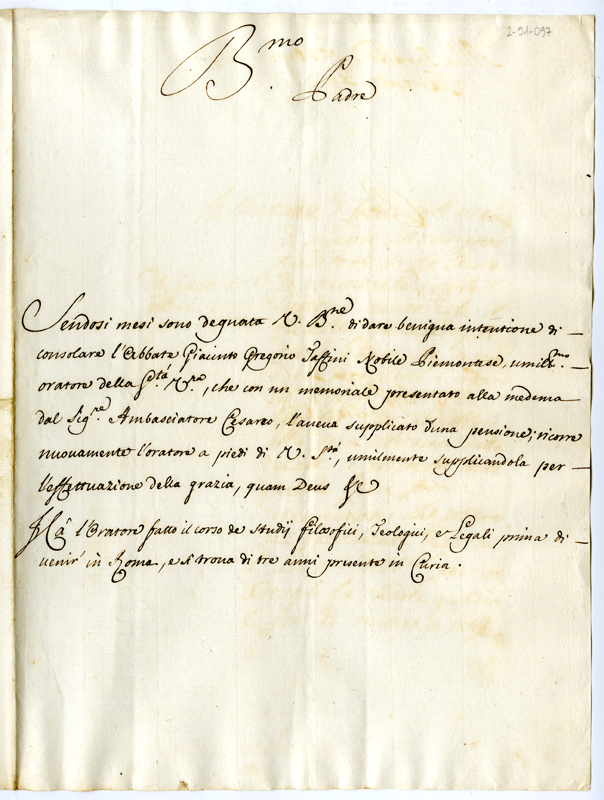 2-91-097
Bmo
Padre
Sendosi mesi sono degnata V. Bne. di dare benigna intentione di
consolare l'Abbate Giacinto Gregorio Taffini Nobile Piemontese, umilmo.
oratore della Stà. Vra., che con un memoriale presentato alla medema
dal Sigre. Ambasciatore Cesareo, l'aveva supplicato d'una pensione; ricorre
nuovamente l'oratore a piedi di V. Stà, umilmente supplicandola per
l'effettuazione della grazia, quam Deus &c
Hà l'Oratore fatto il corso de studij filosofici, Teologici, e Legali prima di
venir' in Roma, e si trova di tre anni presente in Curia.